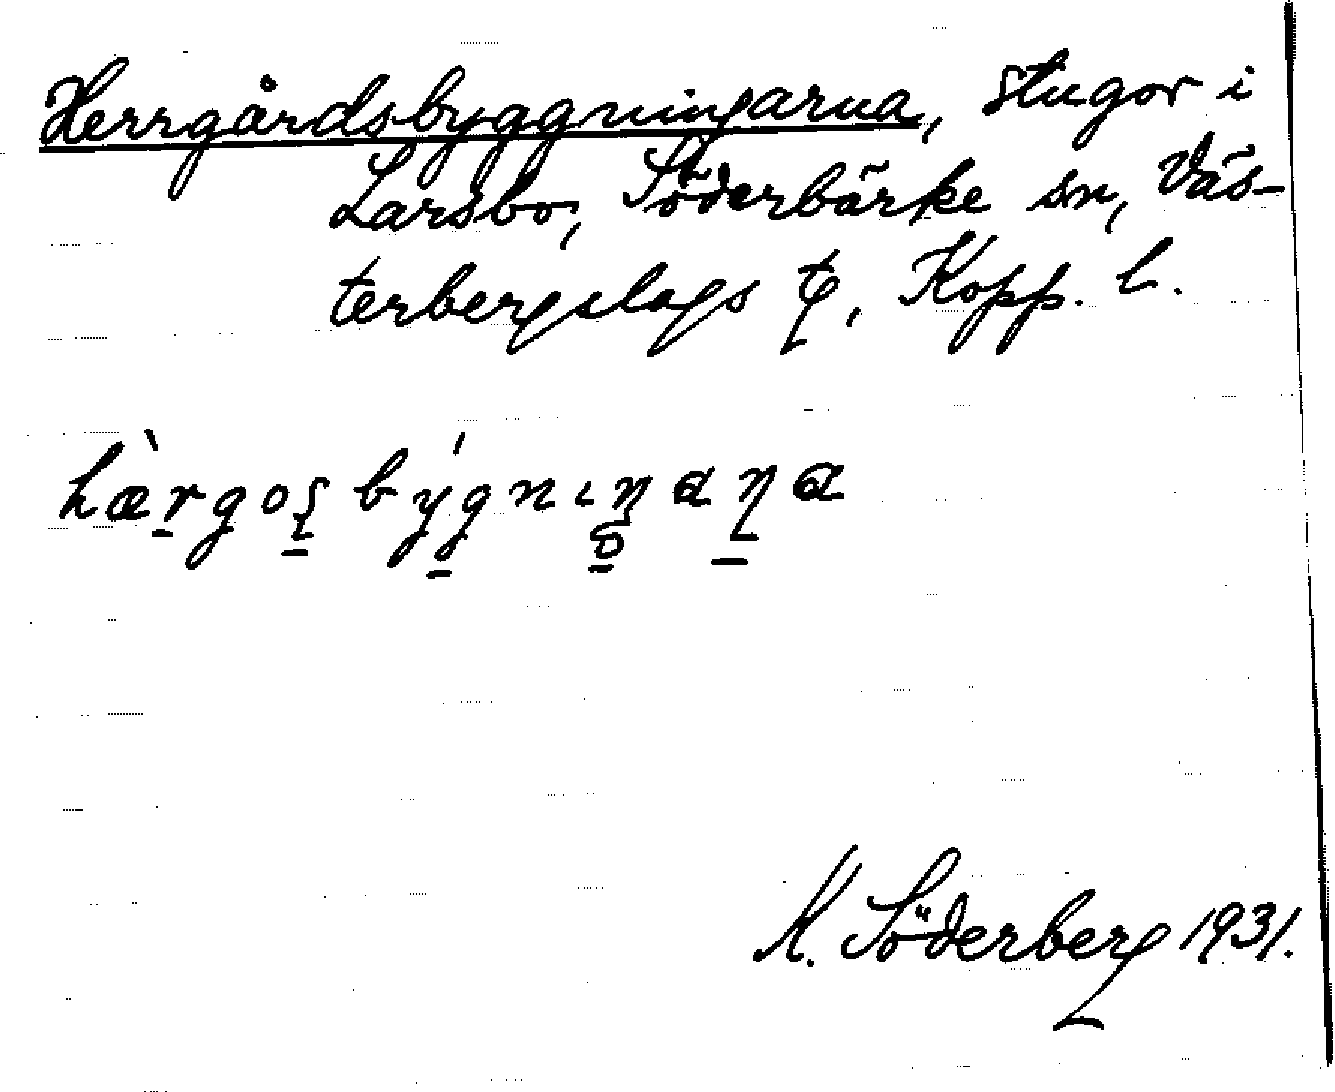 Herrgårdsbyggningarna, stugor i
Larsbo, St Söderbärke sn, Väs-
terbergslags t, Kopp. l.
hæ̀rgoʂbýgnıŋaɳa
K. Söderberg 1931.